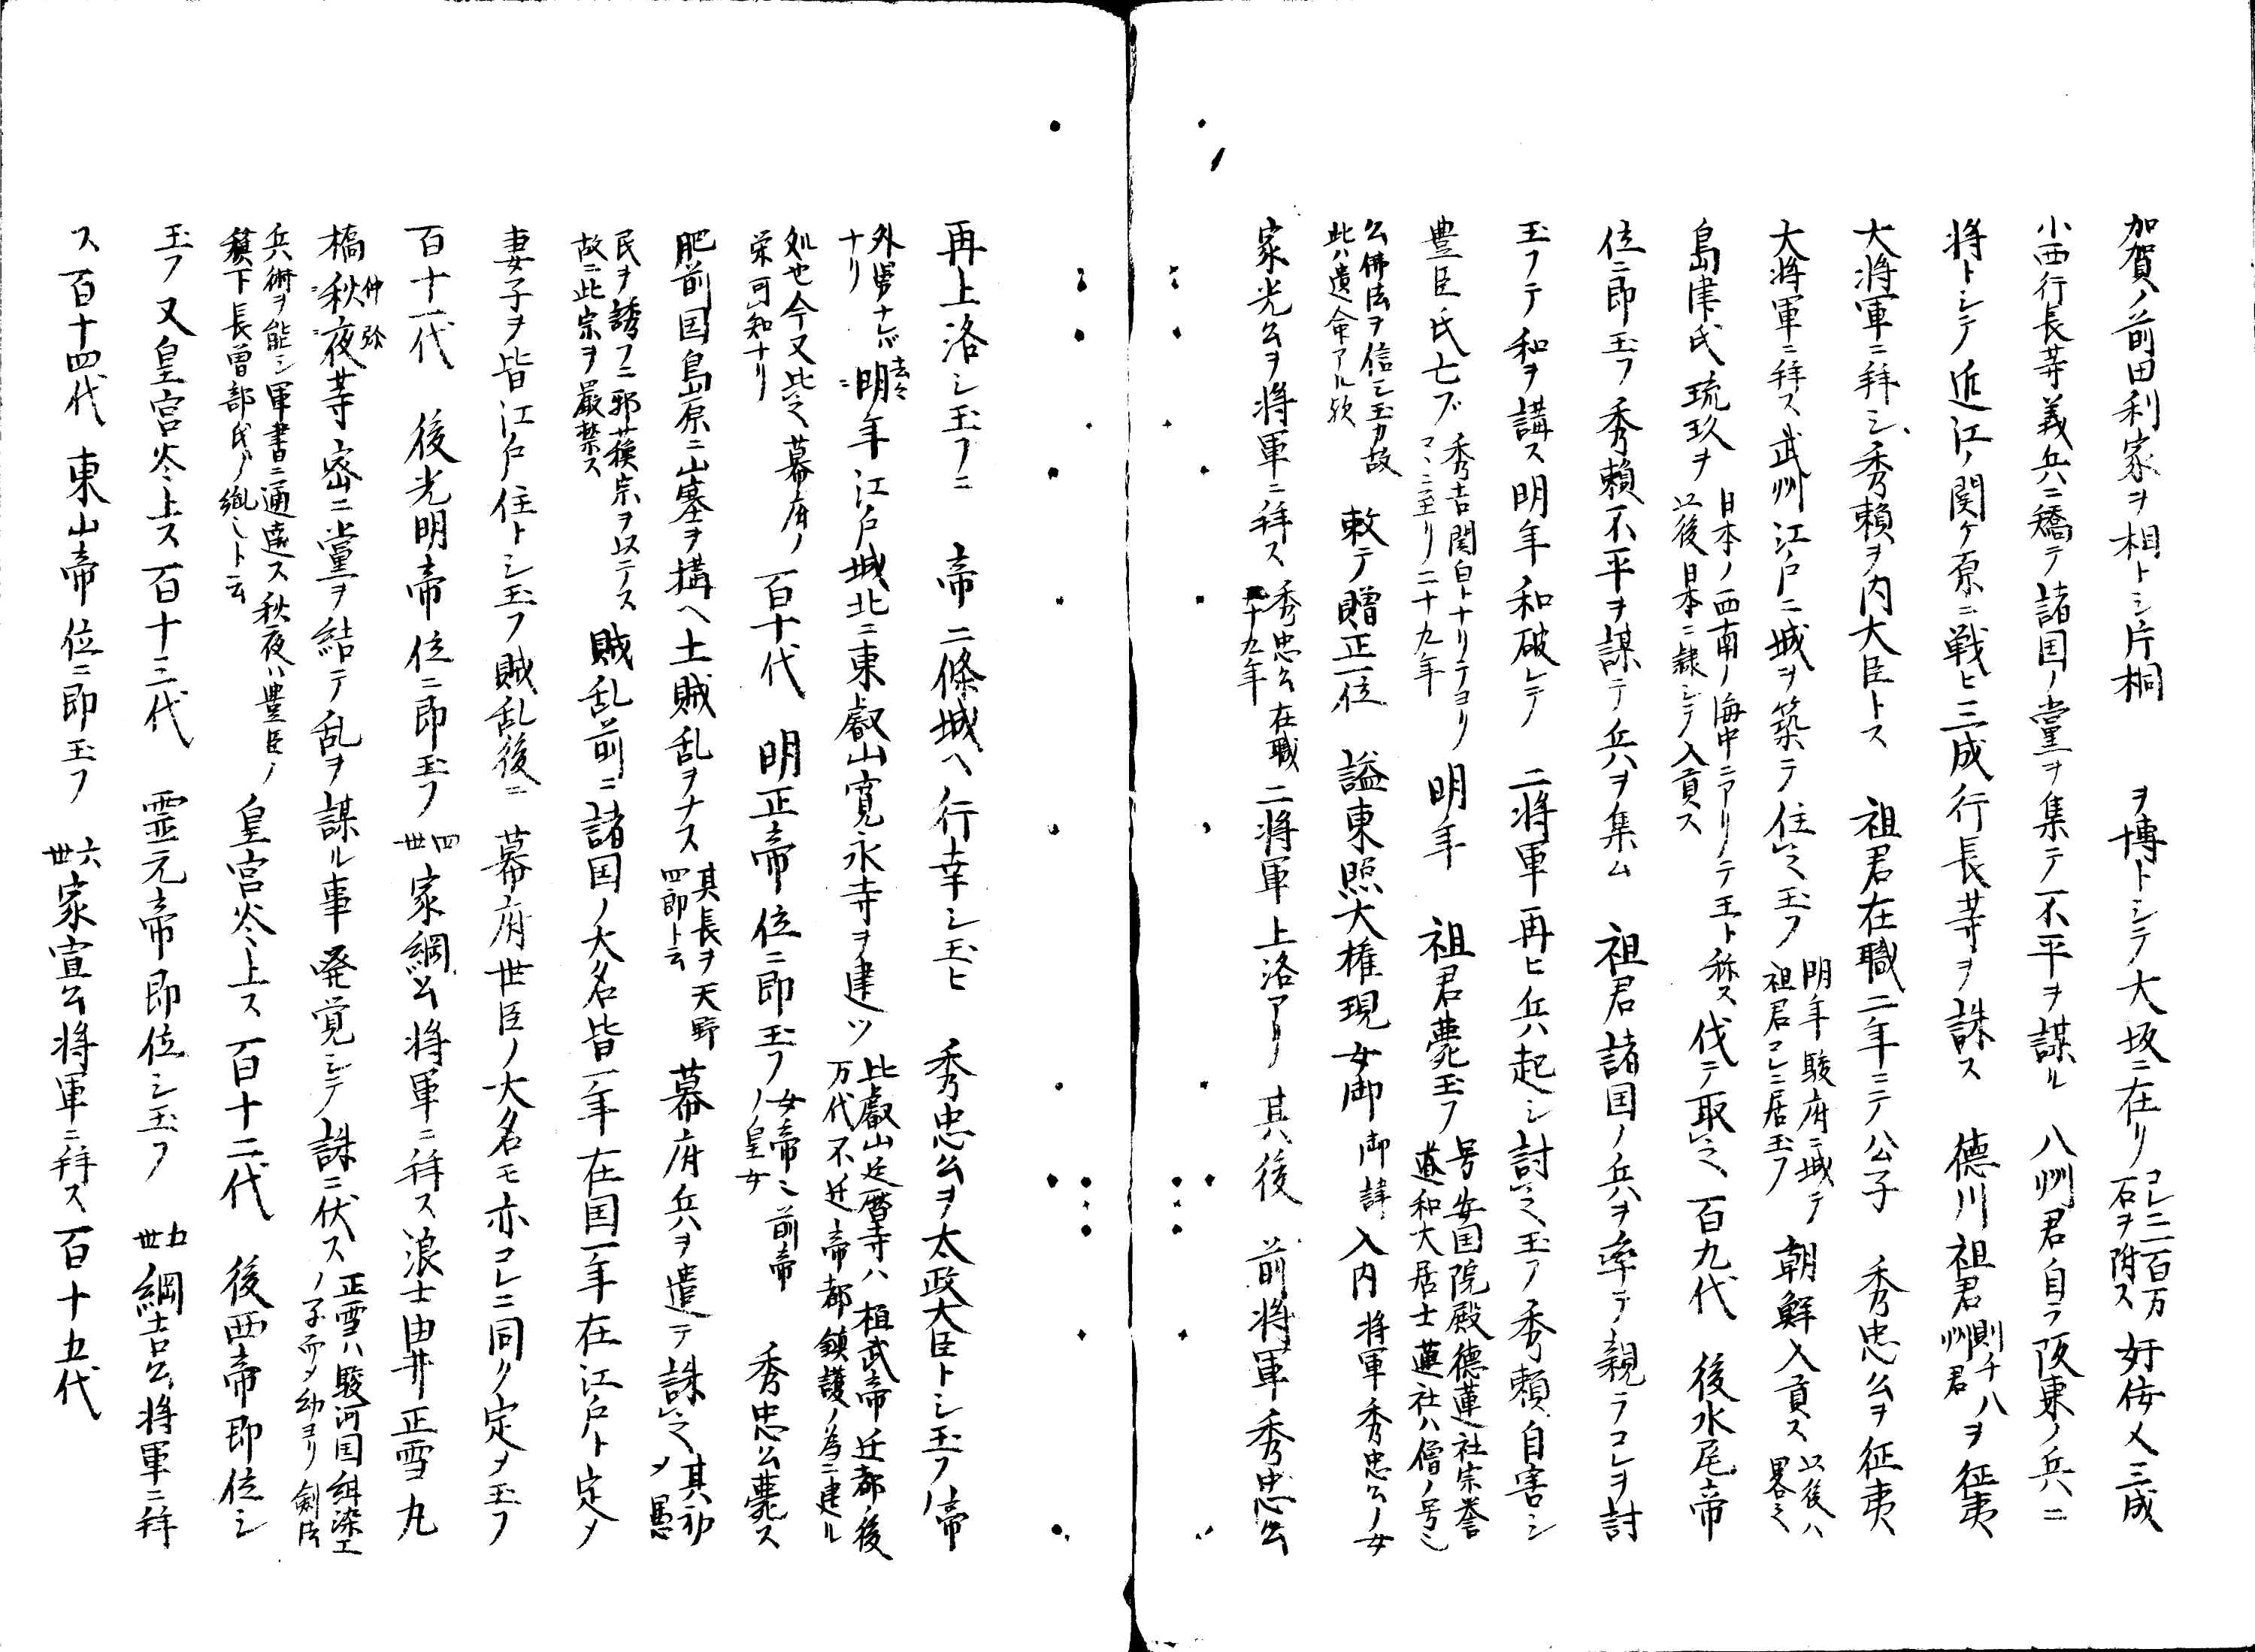 加賀ノ前田利家ヲ相トシ片桐　ヲ博トシテ大坂ニ在リ コレニ二百万石ヲ附ス 奸侫人三成
小西行長等義兵ニ矯テ諸国ノ党ヲ集テ不平ヲ謀ル　八州君自ラ阪東ノ兵ニ
将トシテ近江ノ関ケ原ニ戦ヒ三成行長等ヲ誅ス　徳川祖君 則チ八州君 ヲ征夷
大将軍ニ拜シ秀頼ヲ内大臣トス　祖君在職二年ニテ公子　秀忠公ヲ征夷
大将軍ニ拜ス武州江戸ニ城ヲ築テ住之玉フ 明年駿府ニ城テ祖君コレニ居玉フ 朝鮮入貢ス 以後ハ畧之
島津氏琉玖ヲ 日本ノ西南ノ海中ニアリテ王ト称ス以後日本ニ隷シテ入貢ス 伐テ取之　百九代　後水尾帝
位ニ即玉フ秀頼不平ヲ謀テ兵ヲ集ム　祖君諸国ノ兵ヲ率テ親ラコレヲ討
玉フテ和ヲ講ス明年和破レテ　二将軍再ヒ兵起シ討之玉フ秀頼自害シ
豊臣氏亡ブ 秀吉関白トナリテヨリコヽニ至リ二十九年 明年　祖君薨玉フ 号安国院殿徳蓮社宗誉道和大居士蓮社ハ僧ノ号也
公佛法ヲ信シ玉カ故此ハ遺命アル欤 敕テ贈正一位　謚東照大権現女御 御諱 入内 将軍秀忠公ノ女
家光公ヲ将軍ニ拜ス 秀忠公在職十九年 二将軍上洛アリ其後　前将軍秀忠公
再上洛シ玉フニ　帝二條城ヘ行幸シ玉ヒ　秀忠公ヲ太政大臣トシ玉フ帝
外舅ナレバナリ 明年江戸城北ニ東叡山寛永寺ヲ建ツ 比叡山延暦寺ハ桓武帝迁都ノ後万代不迁帝都鎮護ノ為ニ建ル
処也今又此之幕府ノ栄可知ナリ 百十代　明正帝位ニ即玉フ 女帝ニ前帝ノ皇女 秀忠公薨ス
肥前国島原ニ山塞ヲ搆ヘ土賊乱ヲナス 其長ヲ天野四郎ト云 幕府兵ヲ遣テ誅之 其初メ愚
民ヲ誘フニ邪蘓宗ヲ以テス故ニ此宗ヲ嚴禁ス 賊乱前ニ諸国ノ大名皆一年在国一年在江戸ト定メ
妻子ヲ皆江戸住トシ玉フ賊乱後ニ　幕府世臣ノ大名モ亦コレニ同ク定メ玉フ
百十一代　後光明帝位ニ即玉フ 四世 家綱公将軍ニ拜ス浪士由井正雪丸
橋秋夜等密ニ黨ヲ結テ乱ヲ謀ル事発覚シテ誅ニ伏ス 正雪ハ駿河国紺染工ノ子而メ幼ヨリ剣法
兵術ヲ能シ軍書ニ通達ス秋夜ハ豊臣ノ籏下長曽部氏ノ胤也ト云 皇宮炎上ス百十二代　後西帝即位シ
玉フ又皇宮炎上ス百十三代　霊元帝即位シ玉フ　五世 綱吉公将軍ニ拜
ス百十四代　東山帝位ニ即玉フ　六世 家宣公将軍ニ拜ス百十五代